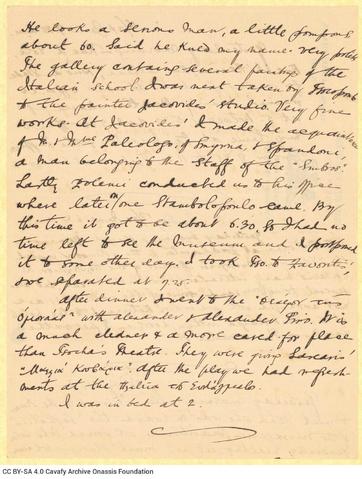 He looks a serious man, a little pompous
about 60. Said he knew my name. Very polite.
The gallery contains several paintings of the
Italian School. I was next taken by
to the painter Jacovides' studio. Very fine
works. At Jacovides' I made the acquaintance
of M. & Mme Paleologo, of Smyrna, & Spandoni,
a man belonging to the Staff of the
Lastly Polemi conducted us to his office
where later on came. By
this time it got to be about 6.30, so I had no
time left to see the Museum and I postponed
it to some other day. I took to
& we separated at 7.25.
After dinner I went to the "Θέατρον της
Ομονοίας" with Alexander & Alexander. It is
a much cleaner & a more cared for place
than Tsocha's Theatre. They were giving
After the play we had refresh-
ments at the
I was in bed at 2.
CC BY-SA 4.0 Cavafy Archive Onassis Foundation